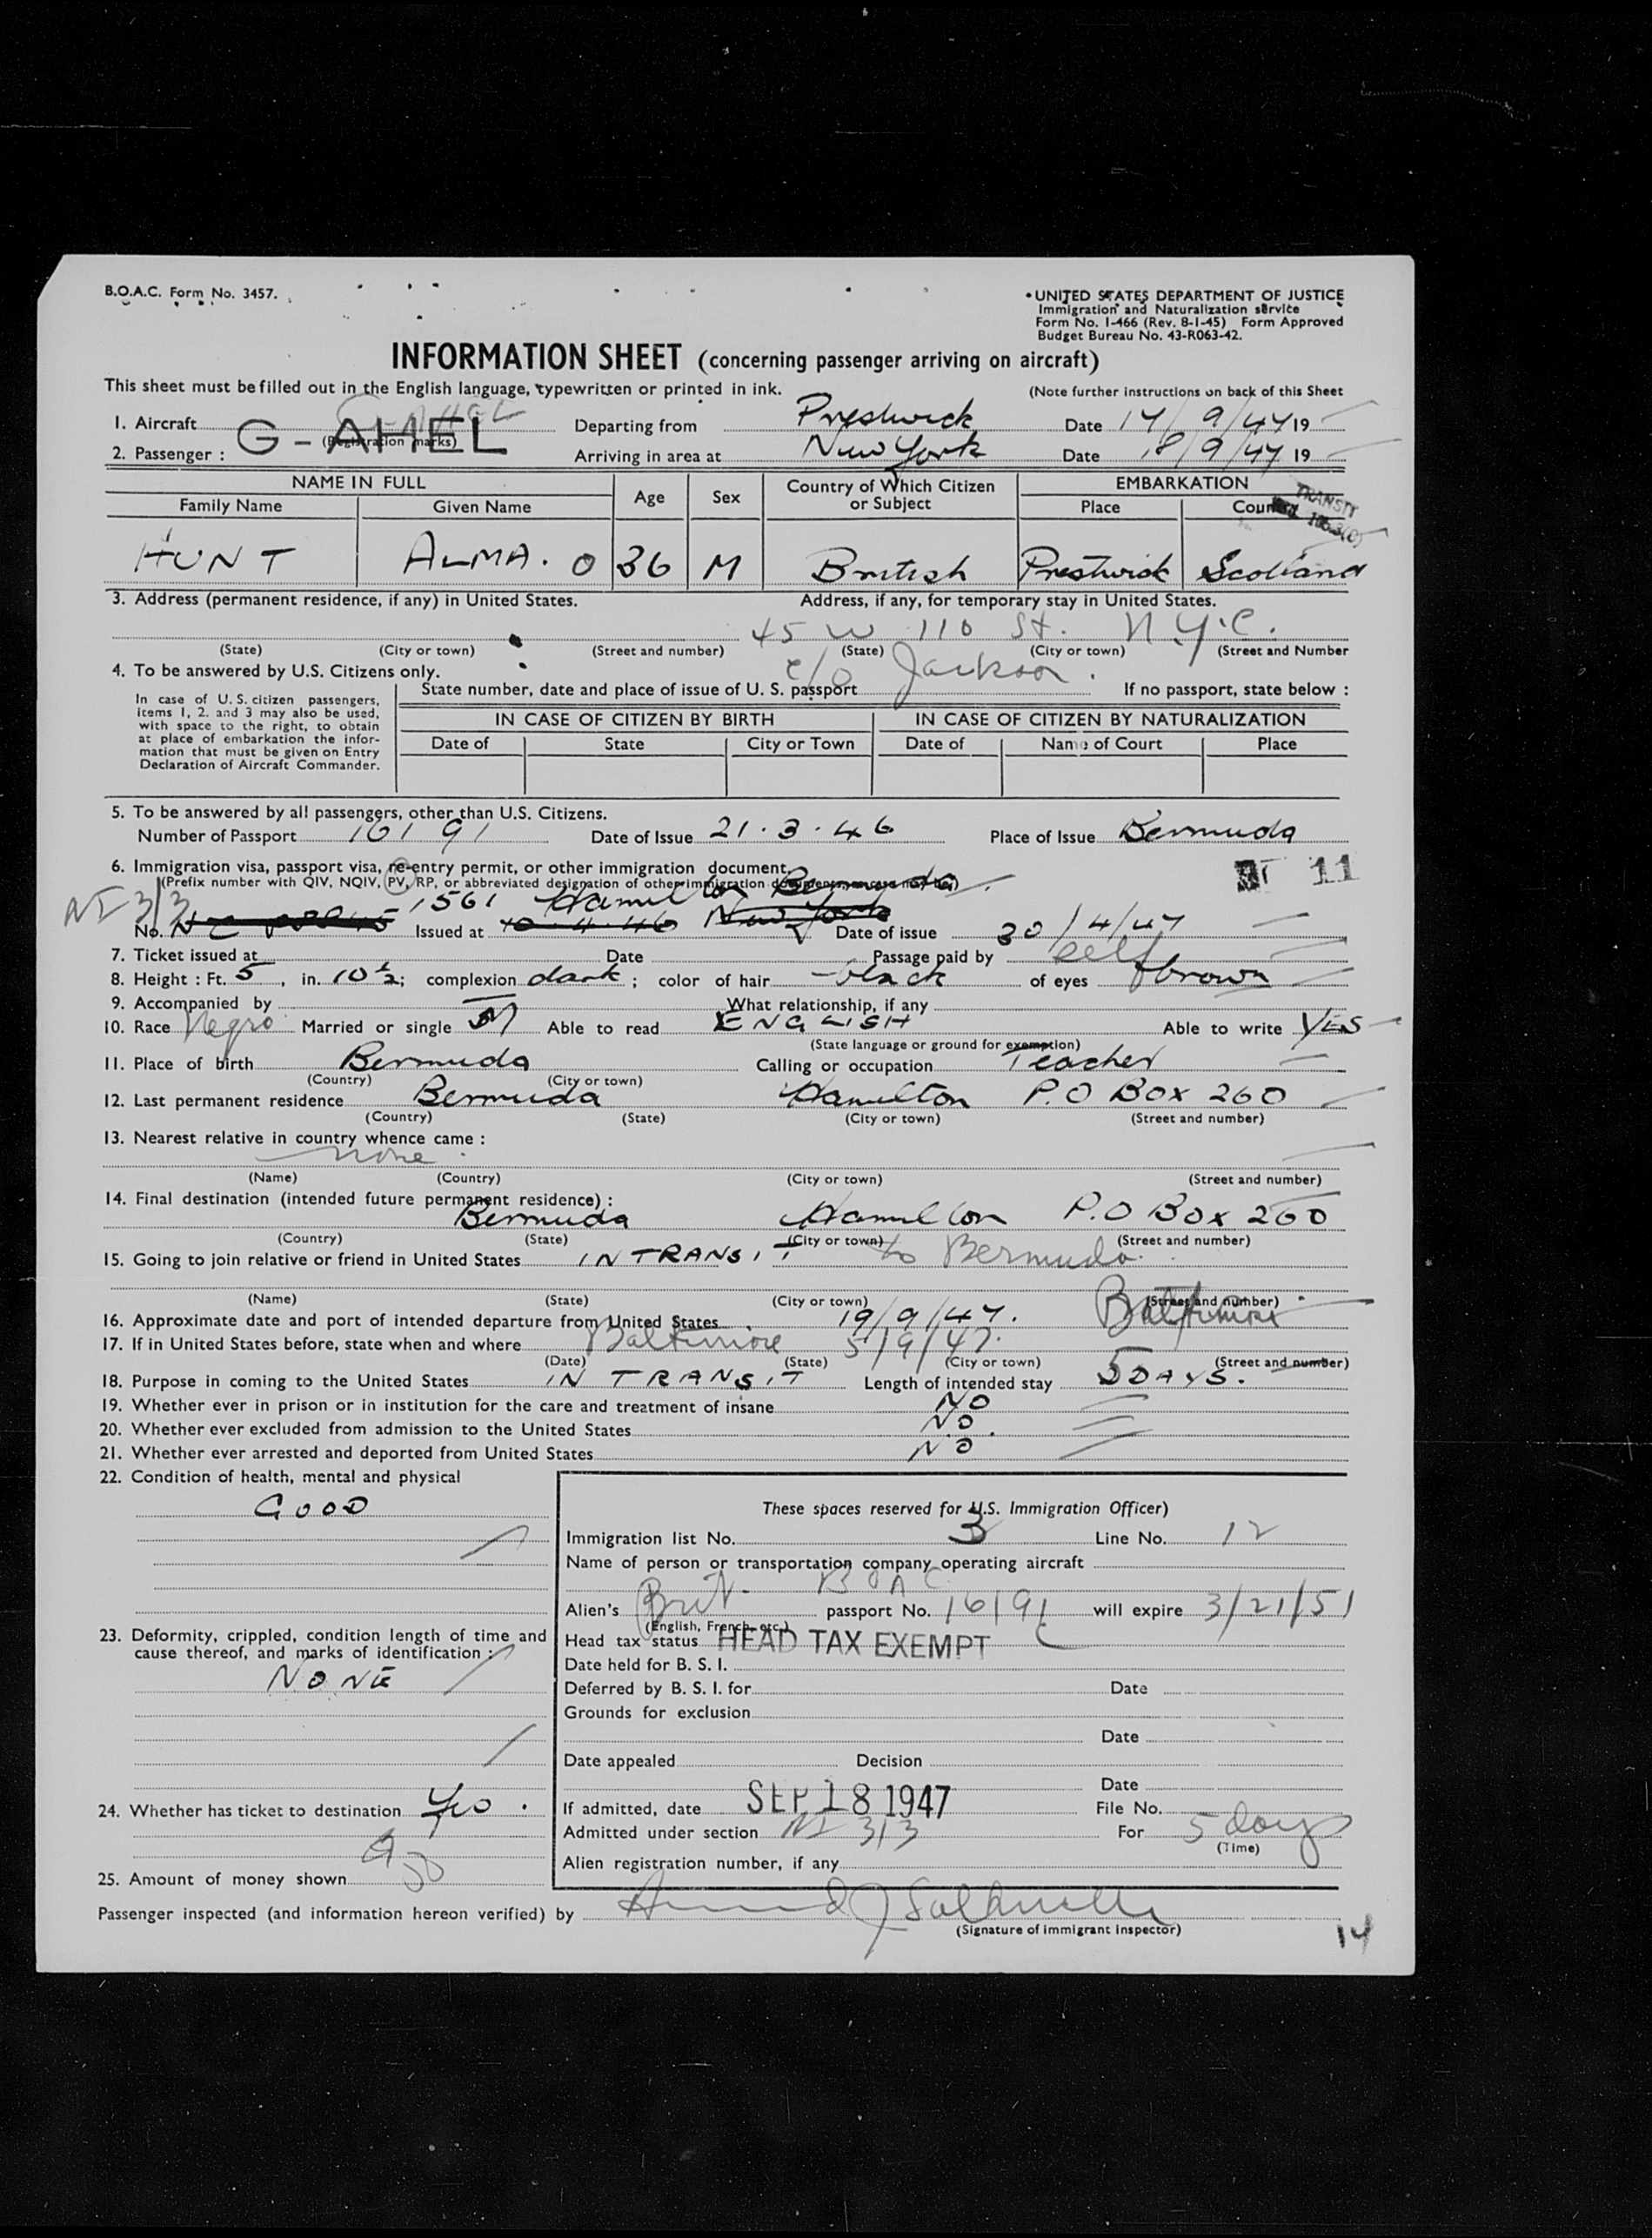 B.O.A.C. Form No. 3457.
UNITED STATES DEPARTMENT OF JUSTICE
Immigration and Naturalization service
Form No. I-466 (Rev. 8-1-45) Form Approved
Budget Bureau No. 43-R063-42.
INFORMATION SHEET (concerning passenger arriving on aircraft)
This sheet must be filled out in the English language, typewritten or printed in ink.
(Note further instructions on back of this Sheet
1. Aircraft G-AHEL Departing from Prestwick Date 17/9/47 19
(Registration marks)
2. Passenger : Arriving in area at New York Date 18/9/47 19
NAME IN FULL Age Sex Country of Which Citizen or Subject EMBARKATION
Family Name Given Name Place Country
TRANSIT
HUNT ALMA. O 36 M British Prestwick Scotland
3. Address (permanent residence, if any) in United States. Address, if any, for temporary stay in United States.
45 W 110 St. N.Y.C.
(State) (City or town) (Street and number) (State) (City or town) (Street and Number
c/o Jackson.
4. To be answered by U.S. Citizens only.
In case of U.S. citizen passengers, items 1, 2. and 3 may also be used, with space to the right, to obtain at place of embarkation the information that must be given on Entry Declaration of Aircraft Commander.
State number, date and place of issue of U. S. passport If no passport, state below :
IN CASE OF CITIZEN BY BIRTH IN CASE OF CITIZEN BY NATURALIZATION
Date of State City or Town Date of Name of Court Place
5. To be answered by all passengers, other than U.S. Citizens.
Number of Passport 16191 Date of Issue 21.3.46 Place of Issue Bermuda
6. Immigration visa, passport visa, re-entry permit, or other immigration document.
11
(Prefix number with QIV, NQIV, PV, RP, or abbreviated designation of other immigration document, as case may be)
NI 3/3 1561 Hamilton Bermuda
No. Issued at 10.4.46 New York Date of issue 30/4/47
7. Ticket issued at Date Passage paid by self
8. Height : Ft. 5, in. 10½; complexion dark; color of hair black of eyes brown
9. Accompanied by What relationship, if any
10. Race Negro Married or single M Able to read ENGLISH Able to write YES
(State language or ground for exemption)
11. Place of birth Bermuda Calling or occupation Teacher
(Country) (City or town)
12. Last permanent residence Bermuda Hamilton P.O Box 260
(Country) (State) (City or town) (Street and number)
13. Nearest relative in country whence came :
None
(Name) (Country) (City or town) (Street and number)
14. Final destination (intended future permanent residence) :
Bermuda Hamilton P.O Box 260
(Country) (State) (City or town) (Street and number)
15. Going to join relative or friend in United States IN TRANSIT to Bermuda.
(Name) (State) (City or town) (Street and number)
16. Approximate date and port of intended departure from United States 19/9/47. Baltimore
17. If in United States before, state when and where Baltimore 5/9/47.
(Date) (State) (City or town) (Street and number)
18. Purpose in coming to the United States IN TRANSIT Length of intended stay 5 DAYS.
19. Whether ever in prison or in institution for the care and treatment of insane NO
20. Whether ever excluded from admission to the United States NO.
21. Whether ever arrested and deported from United States NO
22. Condition of health, mental and physical
GOOD
23. Deformity, crippled, condition length of time and cause thereof, and marks of identification :
NONE
24. Whether has ticket to destination Yes.
25. Amount of money shown
These spaces reserved for U.S. Immigration Officer)
Immigration list No. 3 Line No. 12
Name of person or transportation company operating aircraft
BOAC
Alien's Brit. passport No. 16191 will expire 3/21/51
(English, French, etc.)
Head tax status HEAD TAX EXEMPT
Date held for B. S. I.
Deferred by B. S. I. for Date
Grounds for exclusion
Date
Date appealed Decision
Date
If admitted, date SEP 18 1947 File No.
Admitted under section NI 3/3 For 5 days
(Time)
Alien registration number, if any
Passenger inspected (and information hereon verified) by
(Signature of immigrant inspector)
14